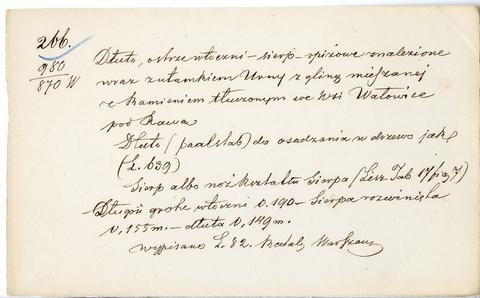 266.
980
870 W
Dłuto, ostrze włóczni – sierp – spiżowe znalezione
wraz z ułamkiem Urny z gliny mieszanej
z kamieniem tłuczonym we Wsi Watowice
pod Rawą
Dłuto (paalstab) do osadzania w drzewo jak
(L. 639)
Sierp albo nóż kształtu sierpa (Lisz Tab 17 fig 7)
Długość grotu włóczni 0.190 – Sierpa rozwinięta
0,155m. – dłuta 0,149m.
wypisano L. 82. Katal. Warszaw